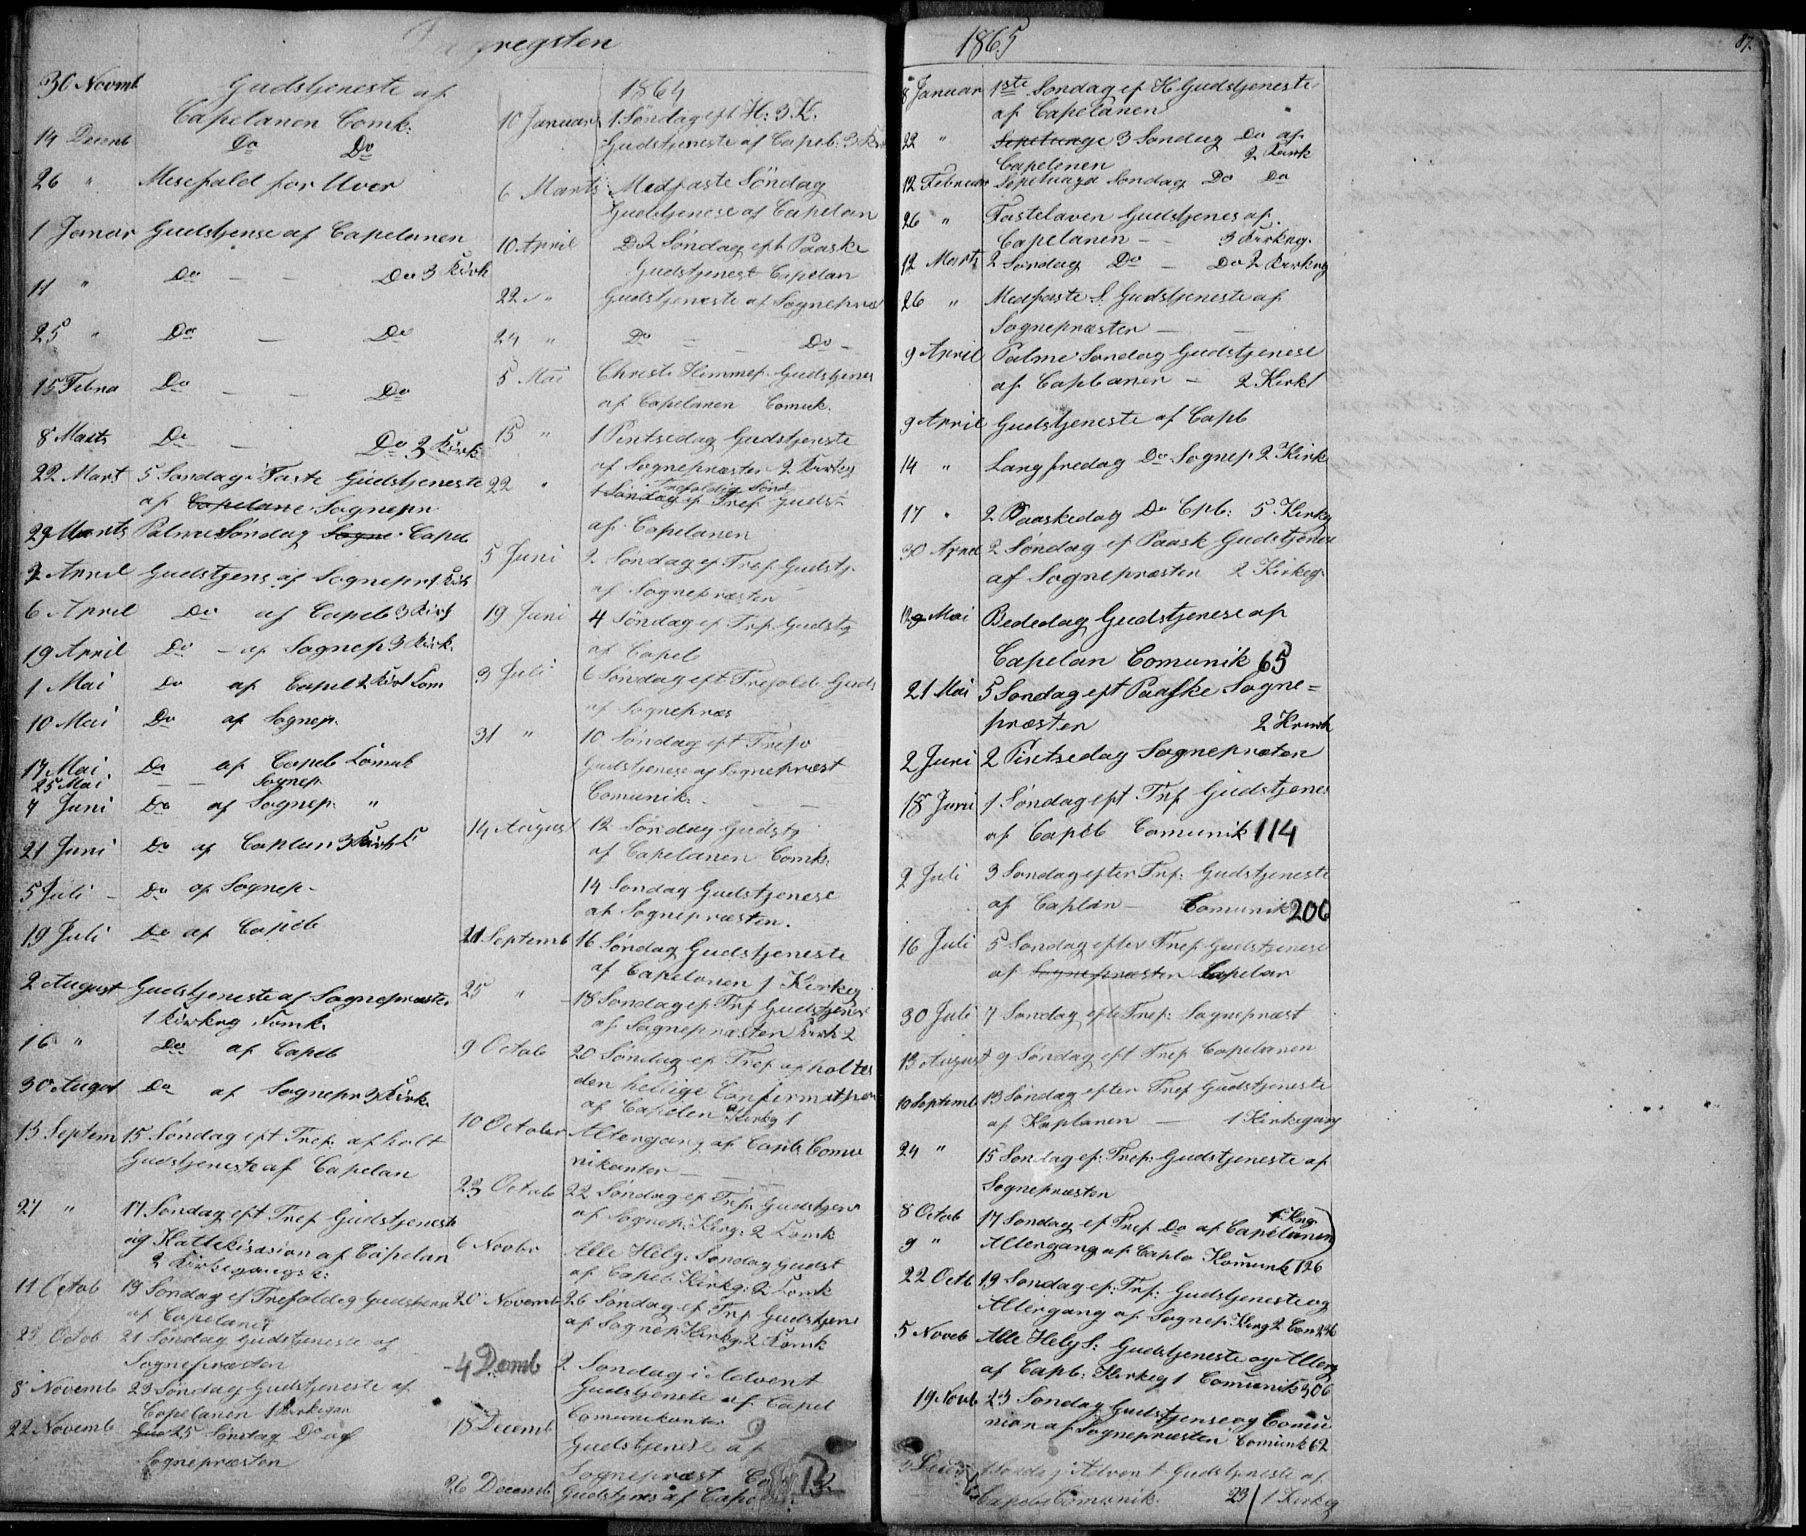 30 Novmb Gudstjeneste af
Capelanen Comk.
14 Decmb Do Do
26 " Mesefald for Uver
1 Januar Gudstjense af Capelanen
11 " Do — — Do 3 Kirk
25 " Do — Do
15 Febru Do — — Do
8 Marts Do — Do 2 Kirk
22 Mart 5 Søndag i Faste Gudstjeneste
af Capelane Sognepr
29 Marts Palme Søndag Sogne Capeb
2 April Gudstjens af Sognepr
6 April Do af Capeb 3 Kirk
19 April Do – af Sognep 3 Kirk.
1 Mai Do af Capel 2 Kirk Com
10 Mai Do af Sognep.
17 Mai. Do af Capeb Comuk
25 Mai — — Sognep
7 Juni Do af Sognep. "
21 Juni Do af Caplan 3 Kirk
5 Juli – Do af Sognep-
19 Juli Do af Capeb
2 August Gudstjeneste af Sognepræsten
1 Kirkeg Komk.
16 " Do af Capeb
30 August Do af Sognepr 3 Kirk.
13 Septem 15 Søndag eft Tref. afholt
Gudstjeneste af Capelan
27 " 17 Søndag eft Tref Gudstjenest
og Kattekisasion af Capelan
2 Kirkegangsk:
11 Octob 19 Søndag ef Trefoldig Gudstjens
af Capelanen
25 Octob 21 Søndag Gudstjeneste af
Sognepræsten
8 Novemb 23 Søndag Gudstjeneste af
Capelanen 1 Kirkegan
22 Novemb 25 Søndag Do af
Sognepræsten
1864
10 Januar 1. Søndag eft H: 3 K.
Gudstjeneste af Capeb. 3 Kir
6 Marts Medfaste Søndag
Gudstjenese af Capelan
10 April D 2 Søndag eft Paaske
Gudstjenest Capelan
22 " Gudstjeneste af Sognepræs
24 " Do — — Do –
5 Mai Christi Himmef. Gudstjenes
af Capelanen Comuk.
15 " 1 Pintsedag Gudstjenste
af Sognepræsten 2 Kirkeg
Trefoldig Sønd
22 " 1 Søndag ef Tref Gudst
af Capelanen
5 Juni 2. Søndag ef Tref Gudstj.
af Sognepræsten
19 Juni 4 Søndag ef Tref. Gudstj
af Capeb
3 Juli 6 Søndag eft Trefold. Guds
af Sognepræs
31 " 10 Søndag eft Trefo
Gudstjenese af Sognepræst
Comunik. — —
14 August 12 Søndag Gudstj
af Capelanen Comk.
14 Søndag Gudstjenese
af Sognepræsten.
Septemb 16 Søndag Gudstjeneste
af Capelanen 1 Kirkeg
25 " 18 Søndag ef Tref Gudstjenes
af Sognepræsten Kirk 2
9 Octob 20 Søndag ef Tref afholtes
den hellige Confirmatjon
af Capelen Kirkg 1
10 October Altergang af Capb Comu
nikanter —
23 Octob 22 Søndag ef Tref Gudstjens
af Sognep. Kirkg. 2 Comk
6 Novbr Alle Helg. Søndag Gudst
af Capeb. Kirkg. 2 Comk
20 Novemb 26 Søndag ef Tref Gudstjens
af Sognep Kirkg. 2 Komk
4 Decmb 2 Søndag i Advent
Gudstjenete af Capel
Comunikanter 9
18 Decemb Gudstjenese af
Sognepræst 12
26 Decemb Gudstjenes af Cape
1865
87.
8 Januar 1ste Søndag ef H Gudstjeneste
af Capelanen
22 " Sepetuage 3 Søndag Do af
Capelenen 2 Kirk
12 Februar Sepetuaga Søndag Do Do
26 " Fastelaven Gudstjenes af.
Capelanen – – 3 Kirkeg.
12 Marts 2 Søndag Do — Do 2 Kirkeg
26 " Medfaste S. Gudstjeneste af
Sognepræsten — —
9 April Palme Søndag Gudstjenese
af Capbanen – 2 Kirk
9 April Gudstjeneste af Capb
14 " Langfredag Do Sognep 2 Kirk
17 " 2 Paaskedag Do Cpb: 5 Kirkg
30 April 2 Søndag ef Paask Gudstjenes
af Sognepræsten 2 Kirkeg.
Mai Bededag Gudstjenese af
Capelan Comunik 65
21 Mai 5 Søndag eft Paaske Sogne=
præsten 2 Kirk
2 Juni 2 Pintsedag Sognepræten
18 Juni 1 Søndag eft Tref Gudstjenes
af Capeb Comunik 114
2 Juli 3 Søndag efter Tref: Gudstjeneste
af Caplan — Comunik 206
16 Juli 5 Søndag efter Tref Gudstjenese
af Sognepræsten Capelan
30 Juli 7 Søndag efte Tref: Sognepræst
13 August 9 Søndag eft Tref Capelanen
10 Septemb 13 Søndag efter Tref Gudstjeneste
af Kaplanen — 1 Kirkegang
24 " 15 Søndag ef: Tref: Gudstjeneste af
Sognepræsten
8 Octob 17 Søndag ef Tref Do af Capelanen
9 " Altergang af Caplo Komunk 126
22 Octb 19 Søndag ef: Tref: Gudstjeneste og
Altergang af Sognep: Kirg 2 Com
5 Noveb Alle Helg S: Gudstjeneste og Alterg
af Capb: Kirkeg 1 Comunik 306
19 Novb 23 Søndag Gudstjense og Comu
nion af Sognepræsten Comunk 62
Søndag i Advent Gudstjeneste af
Capeb Comunik. 23 / 1 Kirkeg